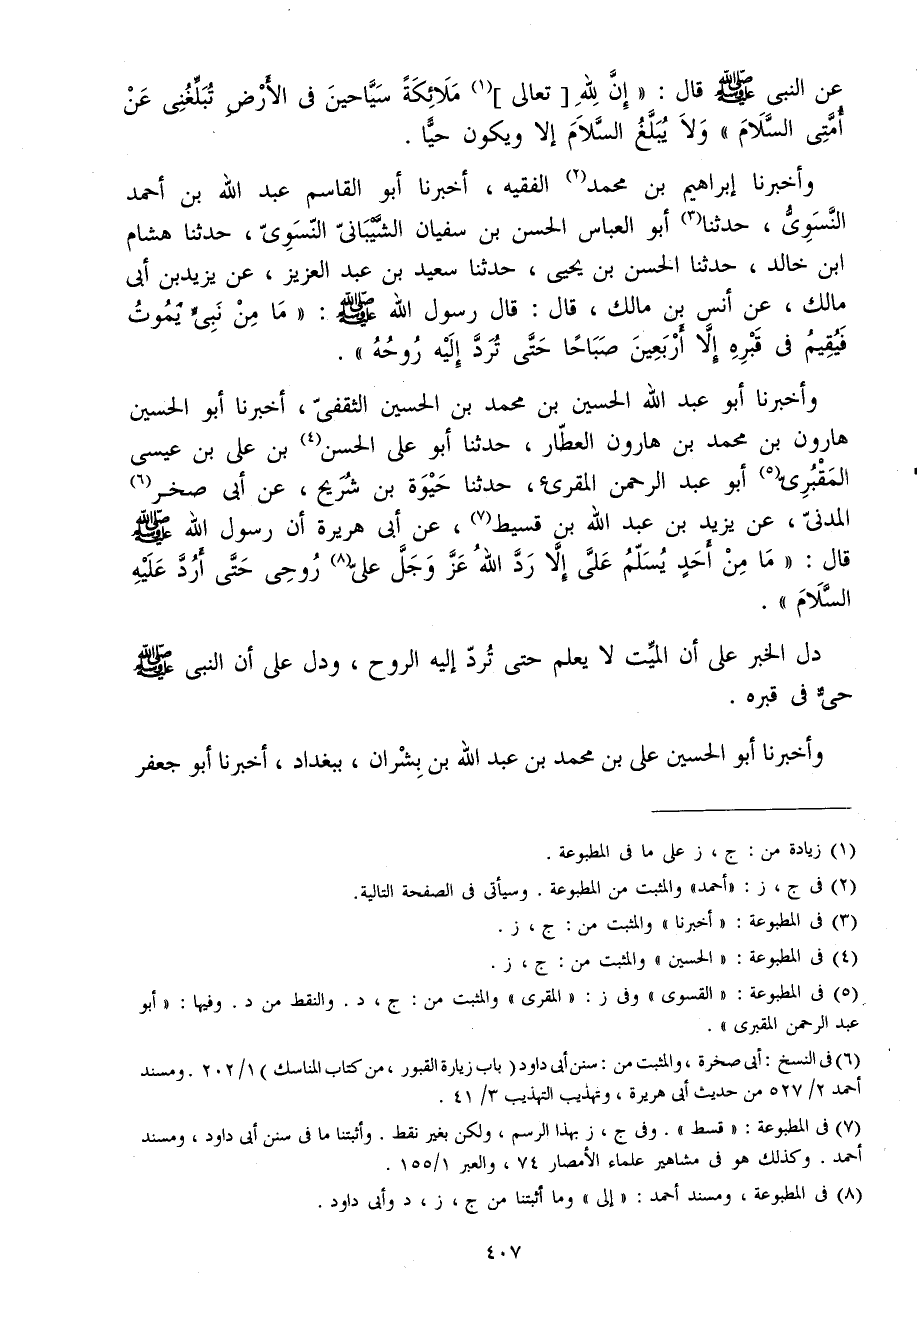 عن النبى ﷺ قال : « إِنَّ لِلَّهِ [ تعالى ](١) مَلَائِكَةً سَيَّاحينَ فى الأَرْضِ تُبَلِّغُنِى عَنْ
أُمَّتِى السَّلَامَ » وَلَا يُبَلَّغُ السَّلَامَ إلا ويكون حيًّا .
وأخبرنا إبراهيم بن محمد(٢) الفقيه ، أخبرنا أبو القاسم عبد الله بن أحمد
النَّسَوِىُّ ، حدثنا(٣) أبو العباس الحسن بن سفيان الشَّيْبَانىّ النّسَوِىّ ، حدثنا هشام
ابن خالد ، حدثنا الحسن بن يحيى ، حدثنا سعيد بن عبد العزيز ، عن يزيدبن أبى
مالك ، عن أنس بن مالك ، قال : قال رسول الله ﷺ : « مَا مِنْ نَبِىٍّ يَمُوتُ
فَيُقِيمُ فى قَبْرِهِ إِلَّا أَرْبَعِينَ صَبَاحًا حَتَّى تُرَدَّ إِلَيْه رُوحُهُ » .
وأخبرنا أبو عبد الله الحسين بن محمد بن الحسين الثقفىّ ، أخبرنا أبو الحسين
هارون بن محمد بن هارون العطّار ، حدثنا أبو على الحسن(٤) بن على بن عيسى
المَقْبُرِىّ(٥) أبو عبد الرحمن المقرئ ، حدثنا حَيْوَة بن شُرَيح ، عن أبى صخر(٦)
المدنىّ ، عن يزيد بن عبد الله بن قسيط(٧) ، عن أبى هريرة أن رسول الله ﷺ
قال : « مَا مِنْ أَحَدٍ يُسَلّمُ عَلَىَّ إِلَّا رَدَّ اللهُ عَزَّ وَجَلَّ علىّ(٨) رُوحِى حَتَّى أَرُدَّ عَلَيْهِ
السَّلَامَ » .
دل الخبر على أن الميِّت لا يعلم حتى تُردّ إليه الروح ، ودل على أن النبى ﷺ
حىٌّ فى قبره .
وأخبرنا أبو الحسين على بن محمد بن عبد الله بن بِشْران ، ببغداد ، أخبرنا أبو جعفر
(١) زيادة من : ج ، ز على ما فى المطبوعة .
(٢) فى ج ، ز : «أحمد» والمثبت من المطبوعة . وسيأتى فى الصفحة التالية.
(٣) فى المطبوعة : « أخبرنا » والمثبت من : ج ، ز .
(٤) فى المطبوعة : « الحسين » والمثبت من : ج ، ز .
(٥) فى المطبوعة : « القسوى » وفى ز : « المقرى » والمثبت من : ج ، د . والنقط من د . وفيها : « أبو
عبد الرحمن المقبرى » .
(٦) فى النسخ : أبى صخرة ، والمثبت من : سنن أبى داود ( باب زيارة القبور ، من كتاب المناسك ) ٢٠٢/١ . ومسند
أحمد ٢/ ٥٢٧ من حديث أبى هريرة ، وتهذيب التهذيب ٣/ ٤١ .
(٧) فى المطبوعة : « قسط » . وفى ج ، ز بهذا الرسم ، ولكن بغير نقط . وأثبتنا ما فى سنن أبى داود ، ومسند
أحمد . وكذلك هو فى مشاهير علماء الأمصار ٧٤ ، والعبر ١٥٥/١ .
(٨) فى المطبوعة ، ومسند أحمد : « إلى » وما أثبتنا من ج ، ز ، د وأبى داود .
٤٠٧